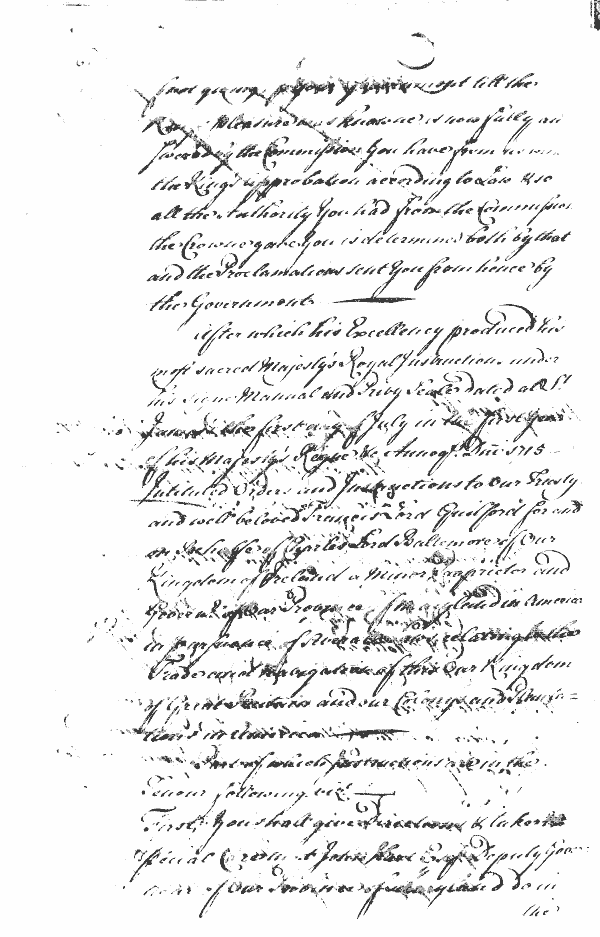 your Government till the
Kings Pleasure was knowne is now fully an
swered by the Commission You have from
the Kings approbation according to Law & so
all the Authority You had from the Commission
the Crowne gave You is determined both by that
and the Proclamations sent You from hence by
the Government
After which his Excellency produced his
most sacred Majestys Royal Instructions under
his signe Manual and Privy Seale dated at St
James's the first day of July in the first Year
of his Majestys Reigne &c Annoq Dni 1715
Intituled Orders and Instructions to Our Trusty
and well beloved Francis Lord Guilford for and
on behalfe of Charles Lord Baltemore of Our
Kingdom of Ireland a Minor Proprietor and
of Our Province of Maryland in America
in pursuance of Several relating to the
Trade and Navigation of this Our Kingdom
of Great Britain and our Colonys and Planta=
tions in America
Part of which Instructions are in the
Tenour following vizt
First, You shall give Directions & take
special Care that John Hart Esqr Deputy Gover
nour of Our Province of Maryland do in
the